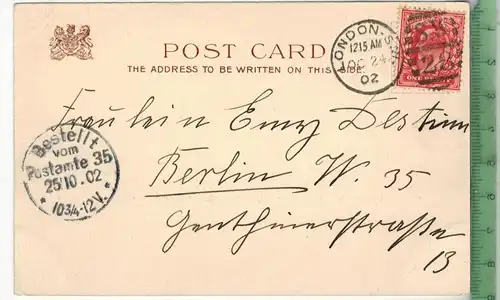 POST CARD
THE ADDRESS TO BE WRITTEN ON THIS SIDE.
LONDON.S.
12 15 AM
OC 24
02
Fräulein Emy Destinn
Berlin W. 35
Genthinerstraße
13
Bestellt
vom
Postamte 35
25/10.02
* 10¾-12V. *